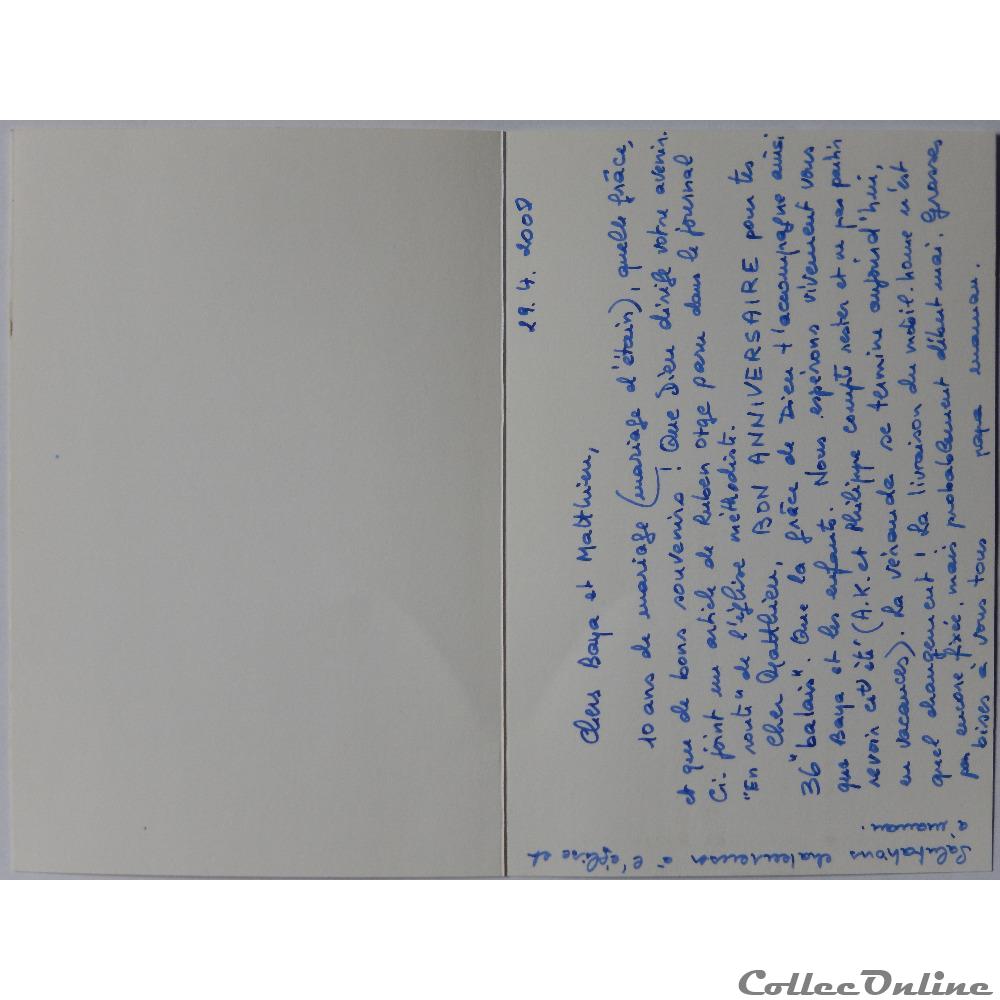 29.4.2008
Chers Baya et Matthieu,
10 ans de mariage (mariage d'étain), quelle grâce,
et que de bons souvenirs ! Que Dieu dirige votre avenir.
Ci-joint un article de Ruben Orge paru dans le journal
"En route" de l'église méthodiste.
Cher Matthieu, BON ANNIVERSAIRE pour tes
36 "balais". Que la grâce de Dieu t'accompagne ainsi
que Baya et les enfants. Nous espérons vivement vous
revoir cet été (A.K. et Philippe compte rester et ne pas partir
en vacances). La véranda se termine aujourd'hui,
quel changement ! La livraison du mobil-home n'est
pas encore fixée, mais probablement début mai. Grosses
bises à vous tous papa maman.
Salutations chaleureuses à l'église et
à maman.
CollecOnline